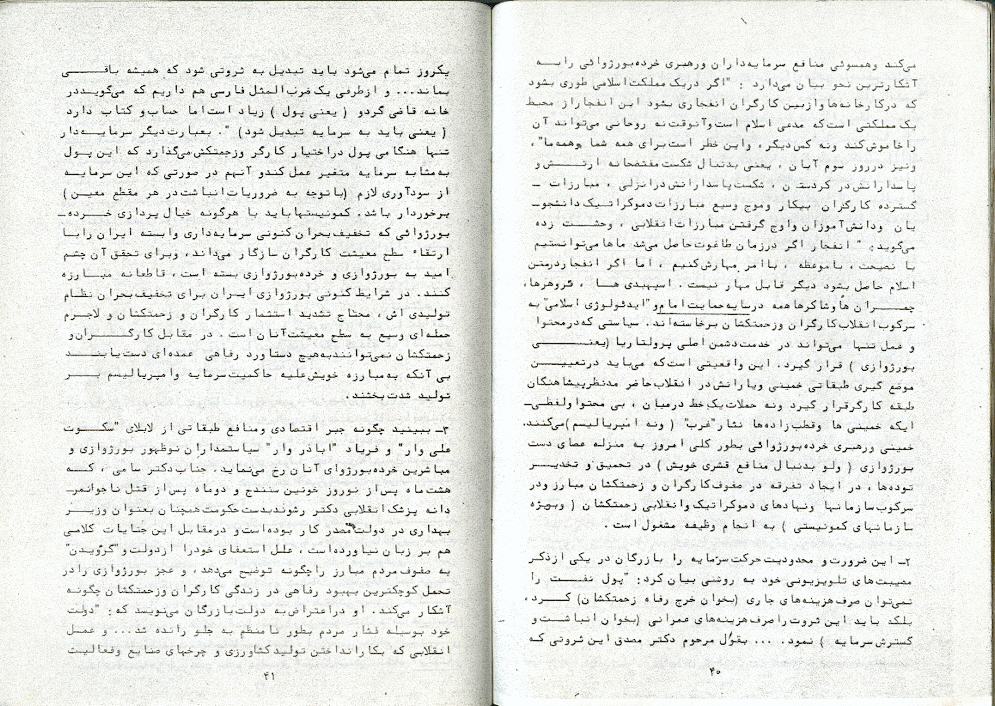 می‌کند وهمسوئی منافع سرمایه‌داران ورهبری خرده‌بورژوائی رابه
آشکارترین نحو بیان می‌دارد : "اگر دریک مملکت اسلامی طوری بشود
که درکارخانه‌ها وازبین کارگران انفجاری بشود این انفجاراز محیط
یک مملکتی است که مدعی اسلام است وآنوقت نه روحانی می‌تواند آن
راخاموش کند ونه کس دیگر، واین خطر است برای همه شما وهمه‌ما"،
ونیز درروز سوم آبان ، یعنی بدنبال شکست مفتضحانه ارتش و
پاسدارانش در کردستان ، شکست پاسدارانش درانزلی ، مبارزات
گسترده کارگران بیکار وموج وسیع مبارزات دموکراتیک دانشجو–
یان ودانش‌آموزان واوج گرفتن مبارزات انقلابی ، وحشت زده
می‌گوید: " انفجار اگر درزمان طاغوت حاصل می‌شد ماها می‌توانستیم
با نصیحت ، باموعظه ، باامر مهارش کنیم ، اما اگر انفجاردرمتن
اسلام حاصل بشود دیگر قابل مهار نیست . اسپهبدی ها ، خسروهرها،
چمران ها وشاکرها همه درسایه حمایت امام و "ایدئولوژی اسلامی" به
سرکوب انقلاب کارگران وزحمتکشان برخاسته‌اند. سیاستی که درمحتوا
و عمل تنها می‌تواند در خدمت دشمن اصلی پرولتاریا (یعنی
بورژوازی ) قرار گیرد. این واقعیتی است که می‌باید درتعیین
موضع گیری طبقاتی خمینی ویارانش در انقلاب حاضر مدنظرپیشاهنگان
طبقه کارگرقرار گیرد ونه حملات یک خط درمیان ، بی محتوا ولفظی–
ایکه خمینی ها وقطب‌زاده‌ها نثار "غرب" ( ونه امپریالیسم )می‌کنند.
خمینی ورهبری خرده‌بورژوائی بطور کلی امروز به منزله عصای دست
بورژوازی ( ولو بدنبال منافع قشری خویش ) در تحمیق و تخدیر
توده‌ها، در ایجاد تفرقه در صفوف کارگران و زحمتکشان مبارز ودر
سرکوب سازمانها ونهادهای دموکراتیک وانقلابی زحمتکشان ( وبویژه
سازمانهای کمونیستی ) به انجام وظیفه مشغول است .
۲– این ضرورت و محدودیت حرکت سرمایه را بازرگان در یکی ازذکر
مصیبت‌های تلویزیونی خود به روشنی بیان کرد: "پول نفت را
نمی‌توان صرف هزینه‌های جاری (بخوان خرج رفاه زحمتکشان) کرد،
بلکه باید این ثروت را صرف هزینه‌های عمرانی (بخوان انباشت و
گسترش سرمایه ) نمود. ... بقول مرحوم دکتر مصدق این ثروتی که
۴۰
یکروز تمام می‌شود باید تبدیل به ثروتی شود که همیشه باقی
بماند... و ازطرفی یک ضرب‌المثل فارسی هم داریم که می‌گویددر
خانه قاضی گردو ( یعنی پول ) زیاد است اما حساب و کتاب دارد
( یعنی باید به سرمایه تبدیل شود) ". بعبارت دیگر سرمایه‌دار
تنها هنگامی پول دراختیار کارگر وزحمتکش می‌گذارد که این پول
به‌مثابه سرمایه متغیر عمل کندو آنهم در صورتی که این سرمایه
از سودآوری لازم (باتوجه به ضروریات انباشت در هر مقطع معین )
برخوردار باشد. کمونیستها باید با هرگونه خیال پردازی خرده–
بورژوائی که تخفیف بحران کنونی سرمایه‌داری وابسته ایران رابا
ارتقاء سطح معیشت کارگران سازگار می‌داند، وبرای تحقق آن چشم
امید به بورژوازی و خرده‌بورژوازی بسته است ، قاطعانه مبارزه
کنند. در شرایط کنونی بورژوازی ایران برای تخفیف بحران نظام
تولیدی اش ، محتاج تشدید استثمار کارگران و زحمتکشان و لاجرم
حمله‌ای وسیع به سطح معیشت آنان است . در مقابل کارگران و
زحمتکشان نمی‌توانند به‌هیچ دستاورد رفاهی عمده‌ای دست یابند
بی آنکه به‌مبارزه خویش علیه حاکمیت سرمایه وامپریالیسم بر
تولید شدت بخشند.
۳– ببینید چگونه جبر اقتصادی ومنافع طبقاتی از لابلای "سکوت
علی وار" و فریاد "اباذر وار" سیاستمداران نوظهور بورژوازی و
مباشرین خرده‌بورژوای آنان رخ می‌نماید. جناب دکتر سامی ، که
هشت ماه پس از نوروز خونین سنندج و دوماه پس از قتل ناجوانمر–
دانه پزشک انقلابی دکتر رشوند بدست حکومت همچنان بعنوان وزیر
بهداری در دولت مصدر کار بوده‌است و درمقابل این جنایات کلامی
هم بر زبان نیاورده‌است ، علل استعفای خودرا ازدولت و "گرویدن"
به صفوف مردم مبارز راچگونه توضیح می‌دهد، و عجز بورژوازی رادر
تحمل کوچکترین بهبود رفاهی در زندگی کارگران وزحمتکشان چگونه
آشکار می‌کند. او دراعتراض به دولت بازرگان می‌نویسد که: "دولت
خود بوسیله فشار مردم بطور نامنظم به جلو رانده شد... و عمل
انقلابی که بکارانداختن تولید کشاورزی و چرخهای صنایع وفعالیت
۴۱